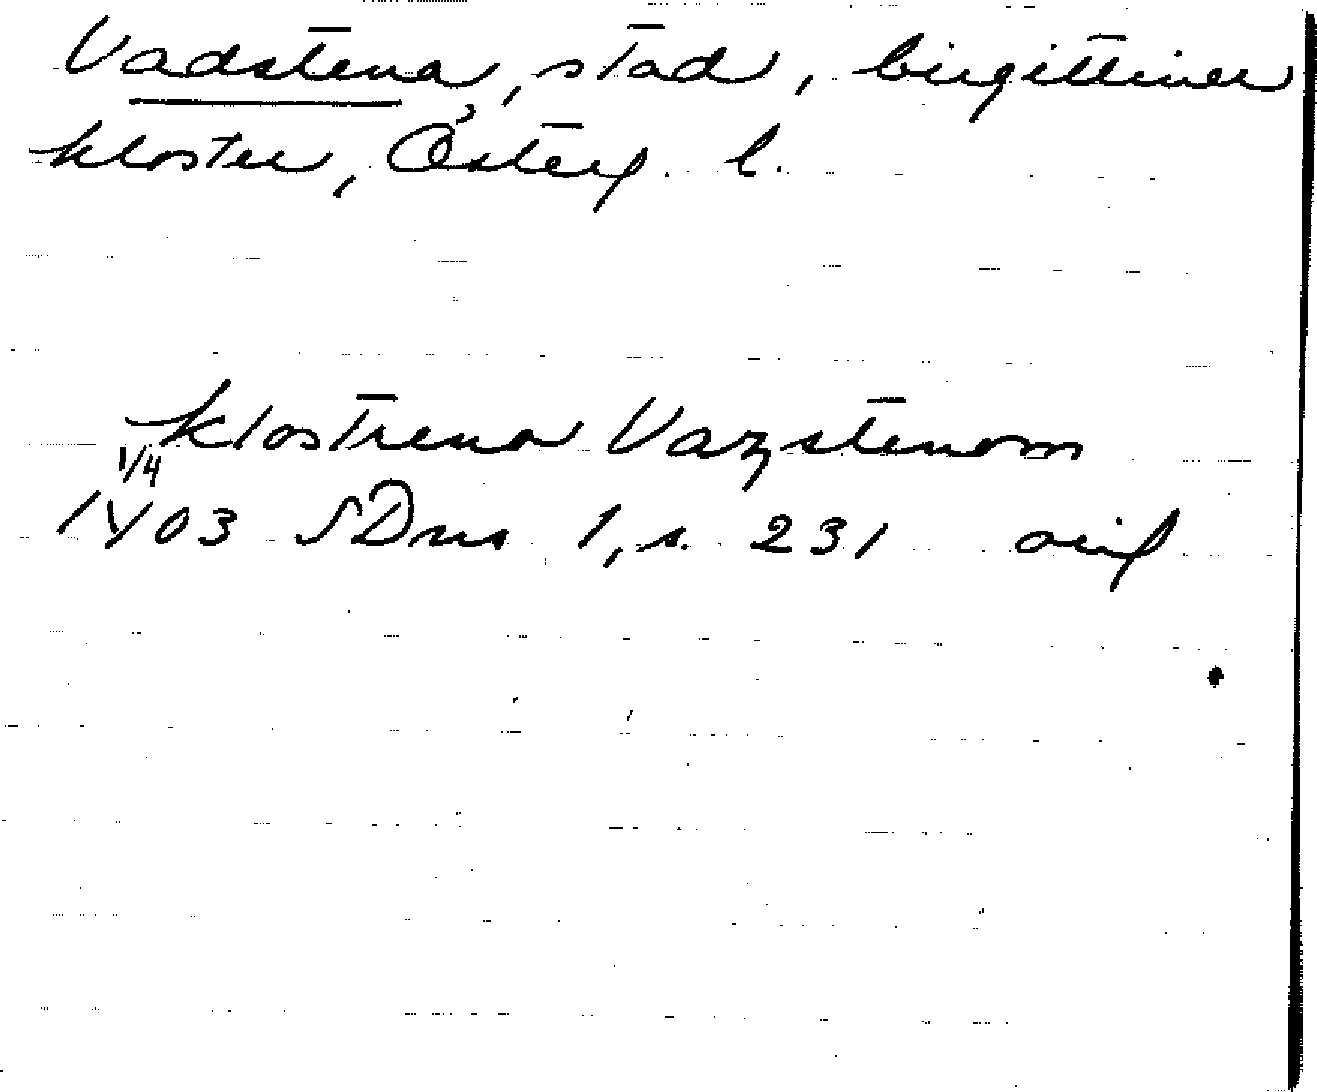 Vadstena, stad, birgittiner
kloster, Österg. l.
klostrena Vazstenom
1/4
1403 SDns 1, s. 231 orig